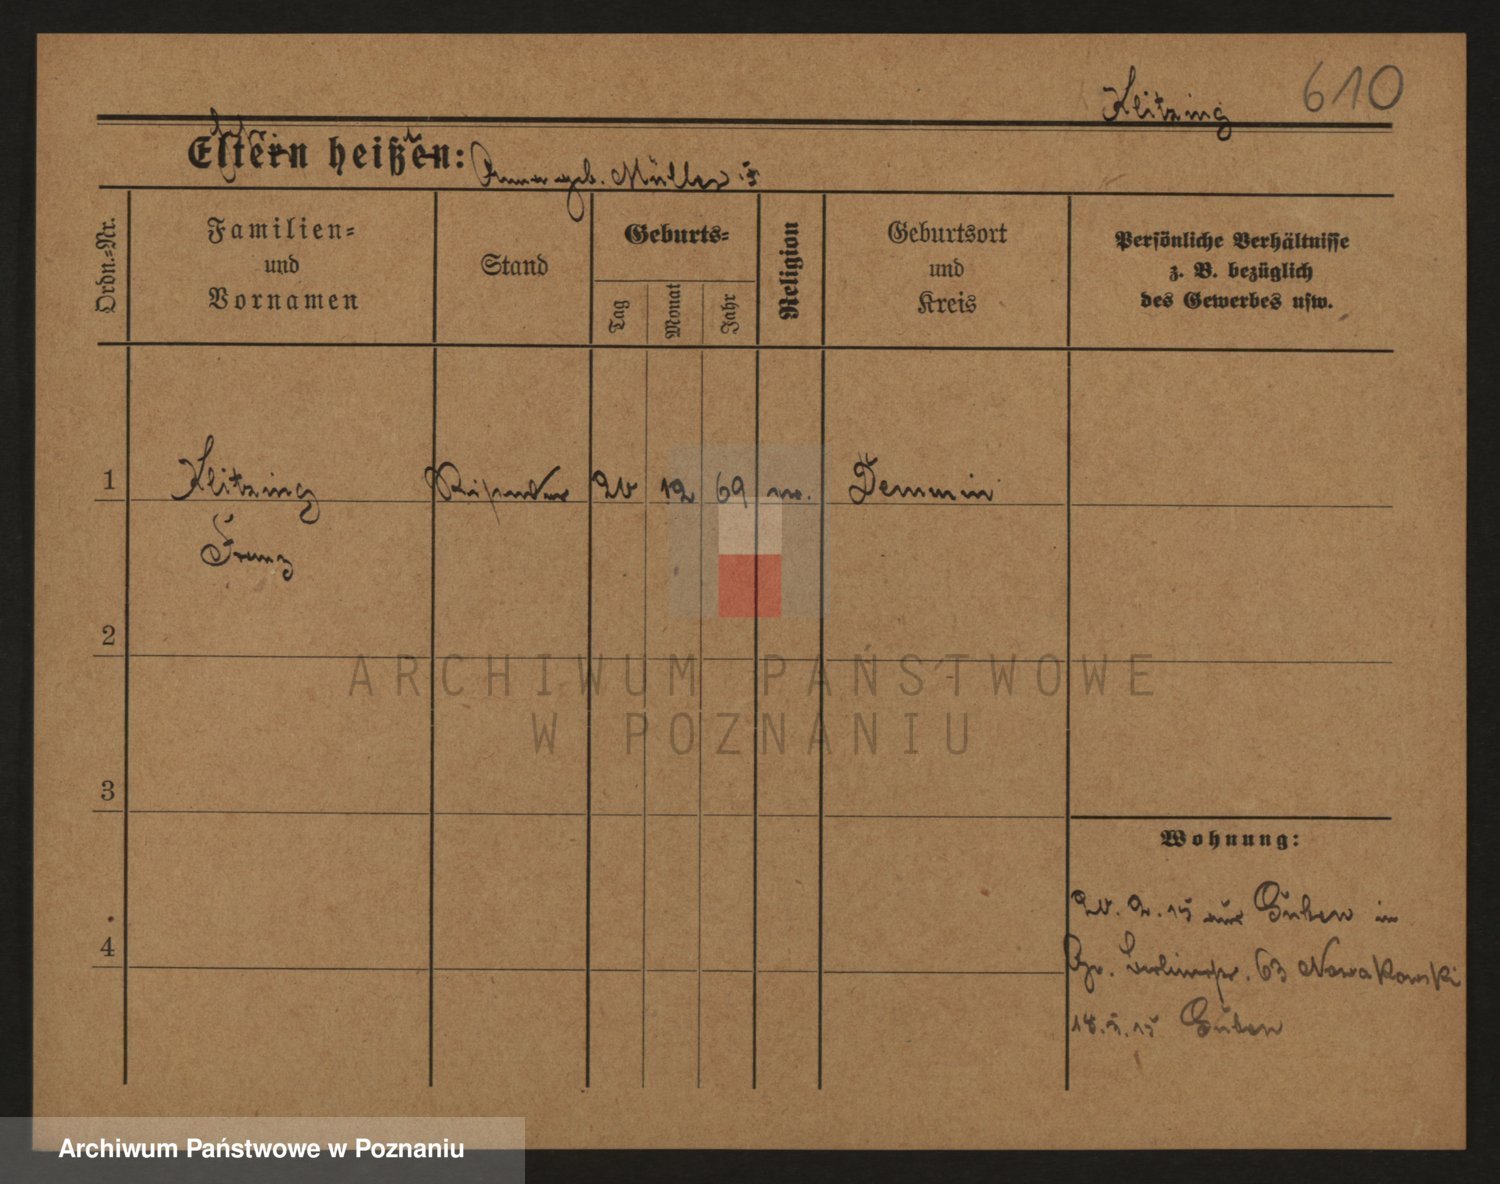 Klitzing 610
Eltern heißen: geb. Müller
Ordn.-Nr.
Familien=
und
Vornamen
Stand
Geburts=
Tag
Monat
Jahr
Religion
Geburtsort
und
Kreis
Persönliche Verhältnisse
z. B. bezüglich
des Gewerbes usw.
1 Klitzing 20 12 69 Demmin
Franz
2
3
4
Wohnung:
20. 2. 15 aus Guben in
63 Nowakowski
15 Guben
ARCHIWUM PAŃSTWOWE
W POZNANIU
Archiwum Państwowe w Poznaniu